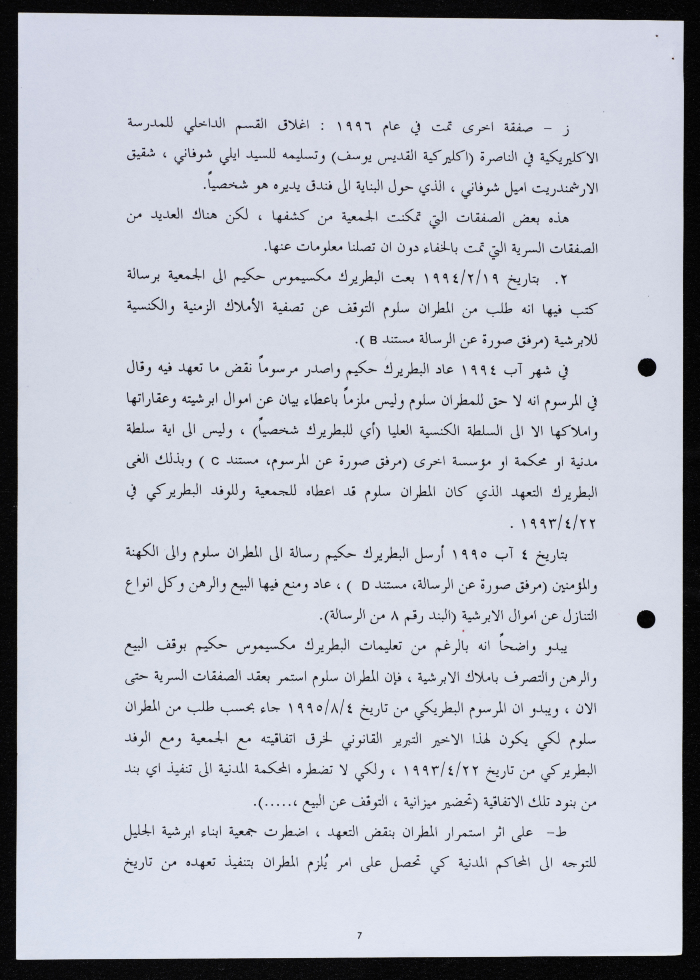 ز - صفقة اخرى تمت في عام ١٩٩٦ : اغلاق القسم الداخلي للمدرسة
الاكليريكية في الناصرة (اكليركية القديس يوسف) وتسليمه للسيد ايلي شوفاني ، شقيق
الارشمندريت اميل شوفاني ، الذي حول البناية الى فندق يديره هو شخصياً.
هذه بعض الصفقات التي تمكنت الجمعية من كشفها ، لكن هناك العديد من
الصفقات السرية التي تمت بالخفاء دون ان تصلنا معلومات عنها.
٢. بتاريخ ١٩٩٤/٢/١٩ بعت البطريرك مكسيموس حكيم الى الجمعية برسالة
كتب فيها انه طلب من المطران سلوم التوقف عن تصفية الأملاك الزمنية والكنسية
للابرشية (مرفق صورة عن الرسالة مستند B ).
في شهر آب ١٩٩٤ عاد البطريرك حكيم واصدر مرسوماً نقض ما تعهد فيه وقال
في المرسوم انه لا حق للمطران سلوم وليس ملزماً باعطاء بيان عن اموال ابرشيته وعقاراتها
واملاكها الا الى السلطة الكنسية العليا (أي للبطريرك شخصياً) ، وليس الى اية سلطة
مدنية او محكمة او مؤسسة اخرى (مرفق صورة عن المرسوم، مستند C ) وبذلك الغى
البطريرك التعهد الذي كان المطران سلوم قد اعطاه للجمعية وللوفد البطريركي في
١٩٩٣/٤/٢٢ .
بتاريخ ٤ آب ١٩٩٥ أرسل البطريرك حكيم رسالة الى المطران سلوم والى الكهنة
والمؤمنين (مرفق صورة عن الرسالة، مستند D ) ، عاد ومنع فيها البيع والرهن وكل انواع
التنازل عن اموال الابرشية (البند رقم ٨ من الرسالة).
يبدو واضحاً انه بالرغم من تعليمات البطريرك مكسيموس حكيم بوقف البيع
والرهن والتصرف باملاك الابرشية ، فإن المطران سلوم استمر بعقد الصفقات السرية حتى
الان ، ويبدو ان المرسوم البطريكي من تاريخ ١٩٩٥/٨/٤ جاء بحسب طلب من المطران
سلوم لكي يكون لهذا الاخير التبرير القانوني لخرق اتفاقيته مع الجمعية ومع الوفد
البطريركي من تاريخ ١٩٩٣/٤/٢٢ ، ولكي لا تضطره المحكمة المدنية الى تنفيذ اي بند
من بنود تلك الاتفاقية (تحضير ميزانية ، التوقف عن البيع ،.....).
ط- على اثر استمرار المطران بنقض التعهد ، اضطرت جمعية ابناء ابرشية الجليل
للتوجه الى المحاكم المدنية كي تحصل على امر يُلزم المطران بتنفيذ تعهده من تاريخ
7